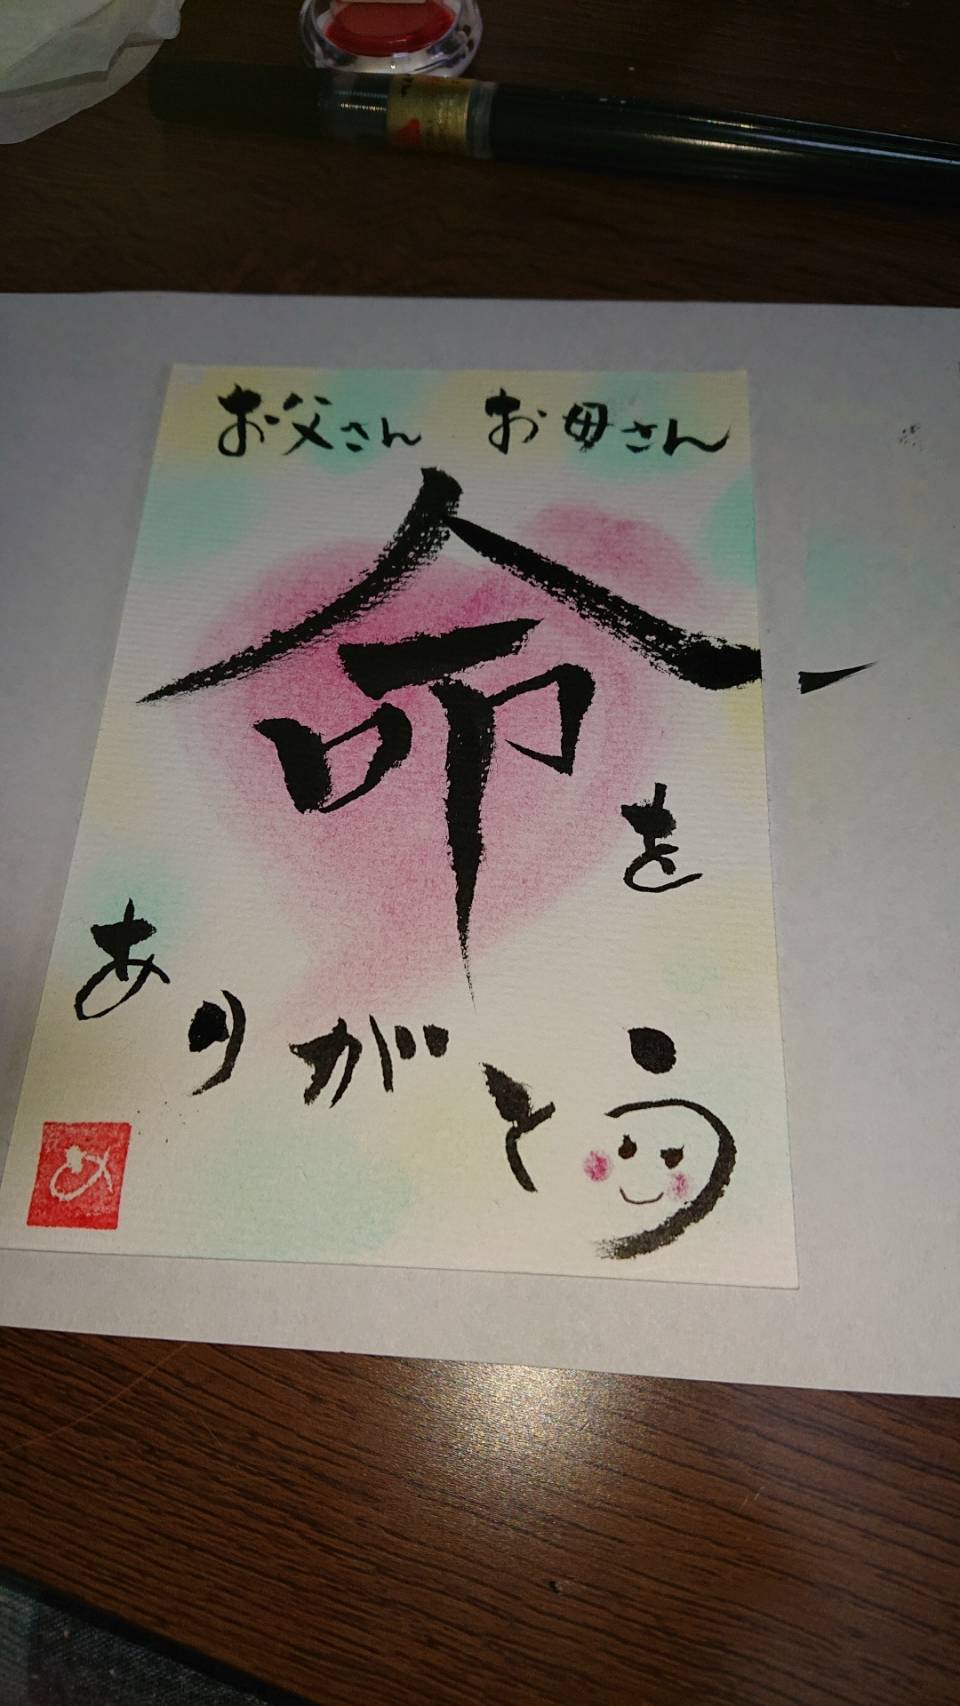 お父さん お母さん
命を
ありがとう
め